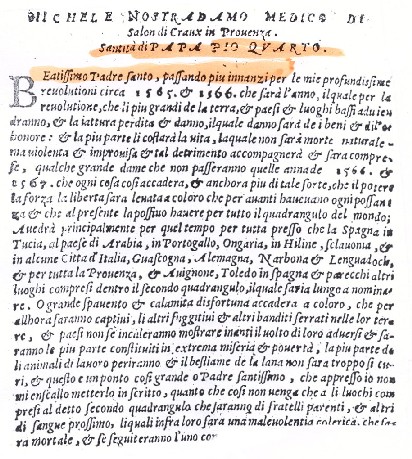 MICHELE NOSTRADAMO MEDICO DI
Salon di Craux in Prouenza.
Santità di PAPA PIO QVARTO.
BEatissimo Padre santo, passando piu innanzi per le mie profundissime
reuolutioni circa 1565. & 1566. che sarà l'anno, il quale per la
reuolutione, che li piu grandi de la terra, & paesi & luoghi bassi aduien
dranno, & la iattura perdita & danno, il quale danno sarà de i beni & dil'
honore: & la piu parte li costarà la vita, la quale non sarà morte naturale
ma violenta & improuisa & tal detrimento accompagnerà & sarà compre
se, qualche grande dame che non passeranno quelle annade 1566. &
1567. che ogni cosa così accadera, & anchora piu di tale sorte, che il potere
la forza la libertà sara leuata a coloro che per auanti haueuano ogni possan
za & che al presente la possiuo hauere per tutto il quadrangulo del mondo;
Auedrà principalmente per quel tempo per tutta presso che la Spagna in
Tucia, al paese di Arabia, in Portogallo, Ongaria, in Hiline, sclauonia, &
in alcune Città d'Italia, Guascogna, Alemagna, Narbona & Lenguadoch,
& per tutta la Prouenza, & Auignone, Toledo in spagna & parecchi altri
luoghi compresi dentro il secondo quadrangulo, il quale saria lungo a nomina
re. O grande spauento & calamita disfortuna accadera a coloro, che per
allhora saranno captiui, li altri fuggitiui & altri banditi serrati nelle lor ter
re, & paesi non se incileranno mostrare inanti il uolto di loro aduersi & sa
ranno le piu parte constituiti in extrema miseria & pouertà, la piu parte de
li animali di lavoro periranno & il bestiame de la lana non sara troppo si cu
ri, & questo e un ponto così grande o Padre santissimo, che appresso io non
mi enscallo metterlo in scritto, quanto che cosi non uenga che a li luochi com
presi al detto secondo quadrangulo che saranno di fratelli parenti, & altri
di sangue prossimo, li quali infra loro sara una maleuolentia colerica, che sa
ra mortale, & se seguiteranno l'uno con